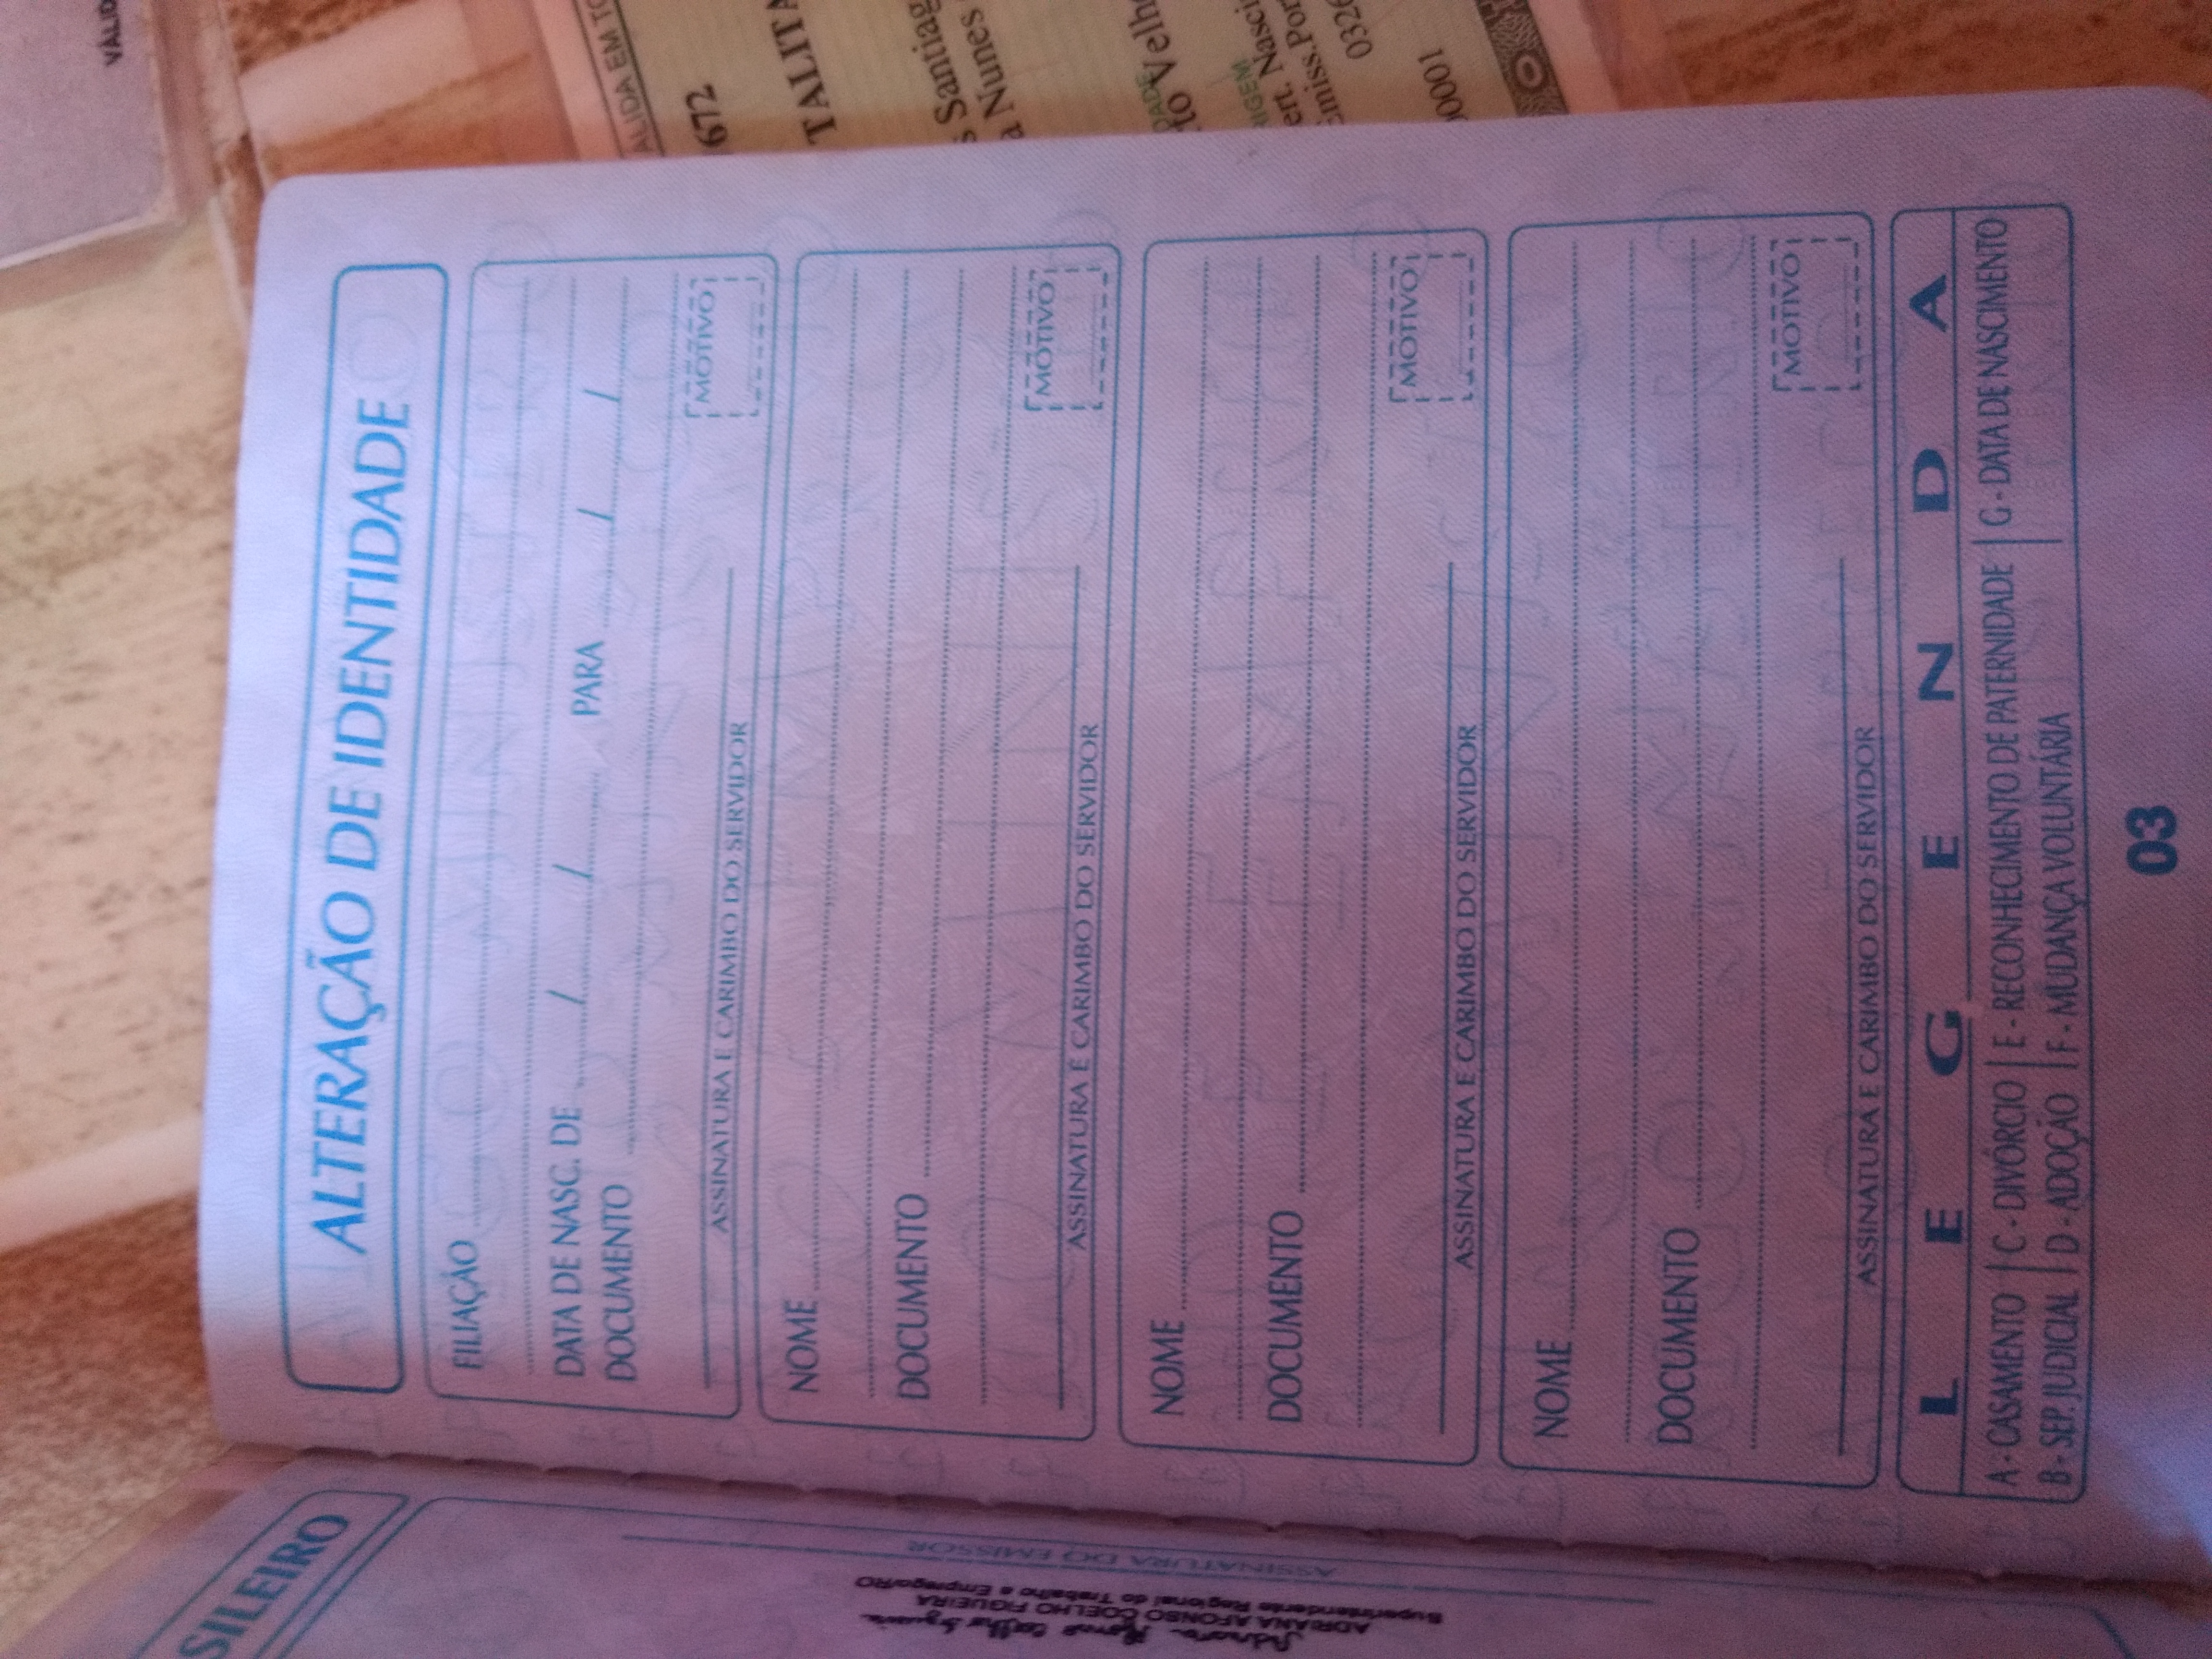 ALTERAÇÃO DE IDENTIDADE
FILIAÇÃO
DATA DE NASC. DE / / PARA / /
DOCUMENTO
MOTIVO
ASSINATURA E CARIMBO DO SERVIDOR
NOME
DOCUMENTO
MOTIVO
ASSINATURA E CARIMBO DO SERVIDOR
NOME
DOCUMENTO
MOTIVO
ASSINATURA E CARIMBO DO SERVIDOR
NOME
DOCUMENTO
MOTIVO
ASSINATURA E CARIMBO DO SERVIDOR
LEGENDA
A - CASAMENTO | C - DIVÓRCIO | E - RECONHECIMENTO DE PATERNIDADE | G - DATA DE NASCIMENTO
B - SEP. JUDICIAL | D - ADOÇÃO | F - MUDANÇA VOLUNTÁRIA
03
SILEIRO
ASSINATURA DO EMISSOR
ADRIANA AFONSO COELHO FIGUEIRA
Superintendente Regional do Trabalho e Emprego/RO
VÁLID
ALIDA EM TO
672
TALITA
s Santiag
a Nunes
to Velh
DADE
IGEM
ert. Nasci
emiss.Por
0326
0001